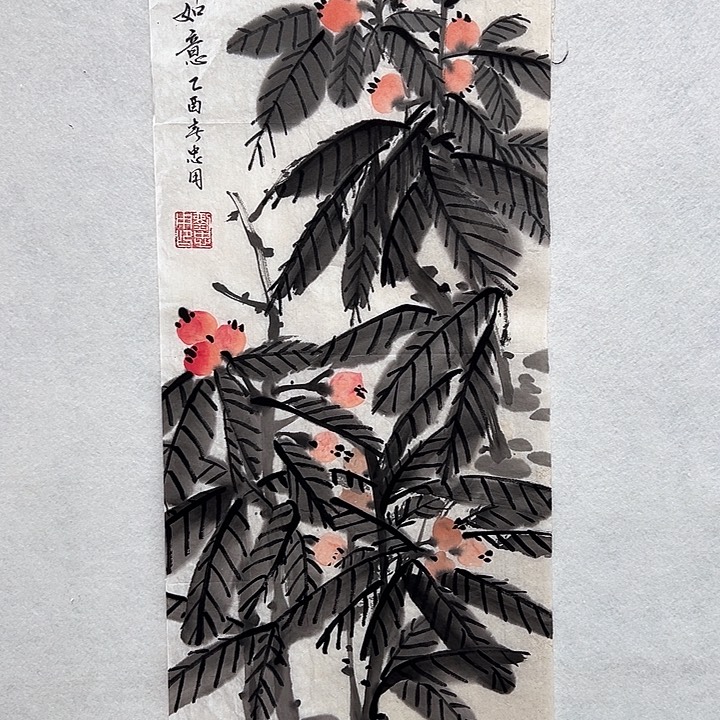 如意 乙酉春忠用